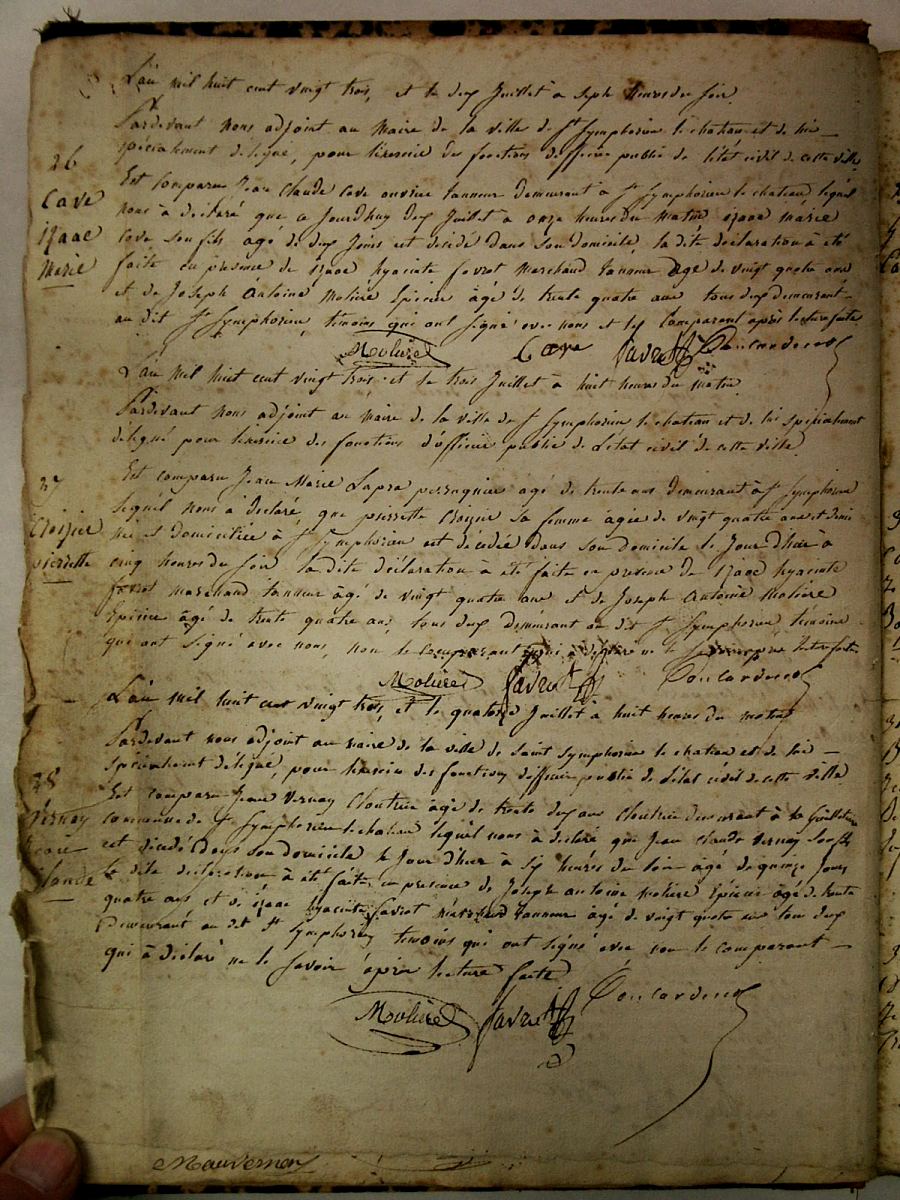 L'an mil huit cent vingt trois, et le deux Juillet à Seph heures du soir
Pardevant nous adjoint au Maire de la ville de St Symphorien le chateau et de lui —
spécialement délégué, pour l'exercice des fonctions d'officier public de l'état civil de cette ville
26
Cave
Izaac
Marie
Est comparu Jean Claude Cave ouvrier tanneur demeurant à St Symphorien le chateau, lequel
nous à déclaré que ce Jourdhuy deux Juillet à onze heures du matin izaac marie
Cave son fils agé de deux Jours est décédé dans son domicile, la dite déclaration à été
faite en présence de izaac hyacinte favrot Marchand Tanneur age de vingt quatre ans
et de Joseph Antoine Molière Epicier âgé de trente quatre ans tous deux demeurant
au dit St Symphorien, temoins qui ont signé avec nous et le Comparant après lecture faite
Moliere Cave favrot
L'an Mil huit cent vingt trois et le trois Juillet à huit heures du matin
Pardevant nous adjoint au Maire de la ville de St Symphorien le chateau et de lui spécialement
délégué pour l'exercice des fonctions d'officier public de l'état civil de cette ville
37
Cloizier
pierrette
Est comparu Jean Marie Lapra perruquier agé de trente ans demeurant à St Symphorien
lequel nous à déclaré que pierrette Cloizier sa femme âgée de vingt quatre ans et demi
née et Domiciliée à St Symphorien est décédée dans son domicile le Jour d'hier à
cinq heures du soir la dite déclaration à été faite en presence de izaac hyacinte
favrot marchand tanneur âgé de vingt quatre ans et de Joseph Antoine Molière
Epicier âgé de trente quatre ans, tous deux demeurant au dit St Symphorien témoins
qui ont signé avec nous, non le comparant qui à déclaré ne le savoir après lecture faite
Moliere favrot
L'an mil huit cent vingt trois, et le quatorze Juillet à huit heures du matin
Pardevant nous adjoint au maire de la ville de Saint Symphorien le chateau et de lui —
spécialement délégué, pour l'exercice des fonctions d'officier public de l'état civil de cette ville
38
Vernay
Jean
Claude
Est comparu Jean Vernay Cloutier âgé de trente deux ans Cloutier demeurant à la
commune de St Symphorien le chateau lequel nous à déclaré que Jean Claude Vernay son fils
est décédé dans son domicile le Jour d'hier à six heures du soir agé de quinze Jours
la dite déclaration à été faite en presence de Joseph antoine Moliere Epicier âgé de trente
quatre ans et de izaac hyacinte favrot Marchand Tanneur âgé de vingt quatre ans tous deux
Demeurant au dit St Symphorien temoins qui ont signé avec nous le comparant —
qui à déclaré ne le savoir après lecture faite
Moliere favrot
Mauvernay